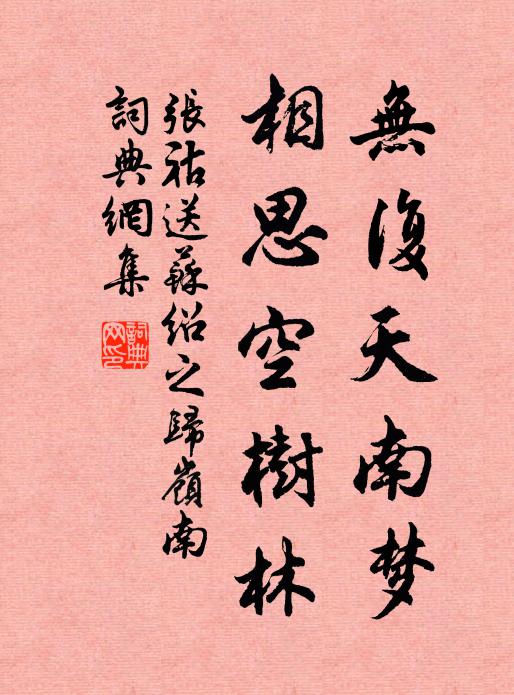 無復天南梦
相思空樹林
張祜送蘇紹之歸嶺南
詞典網集
詞典网印